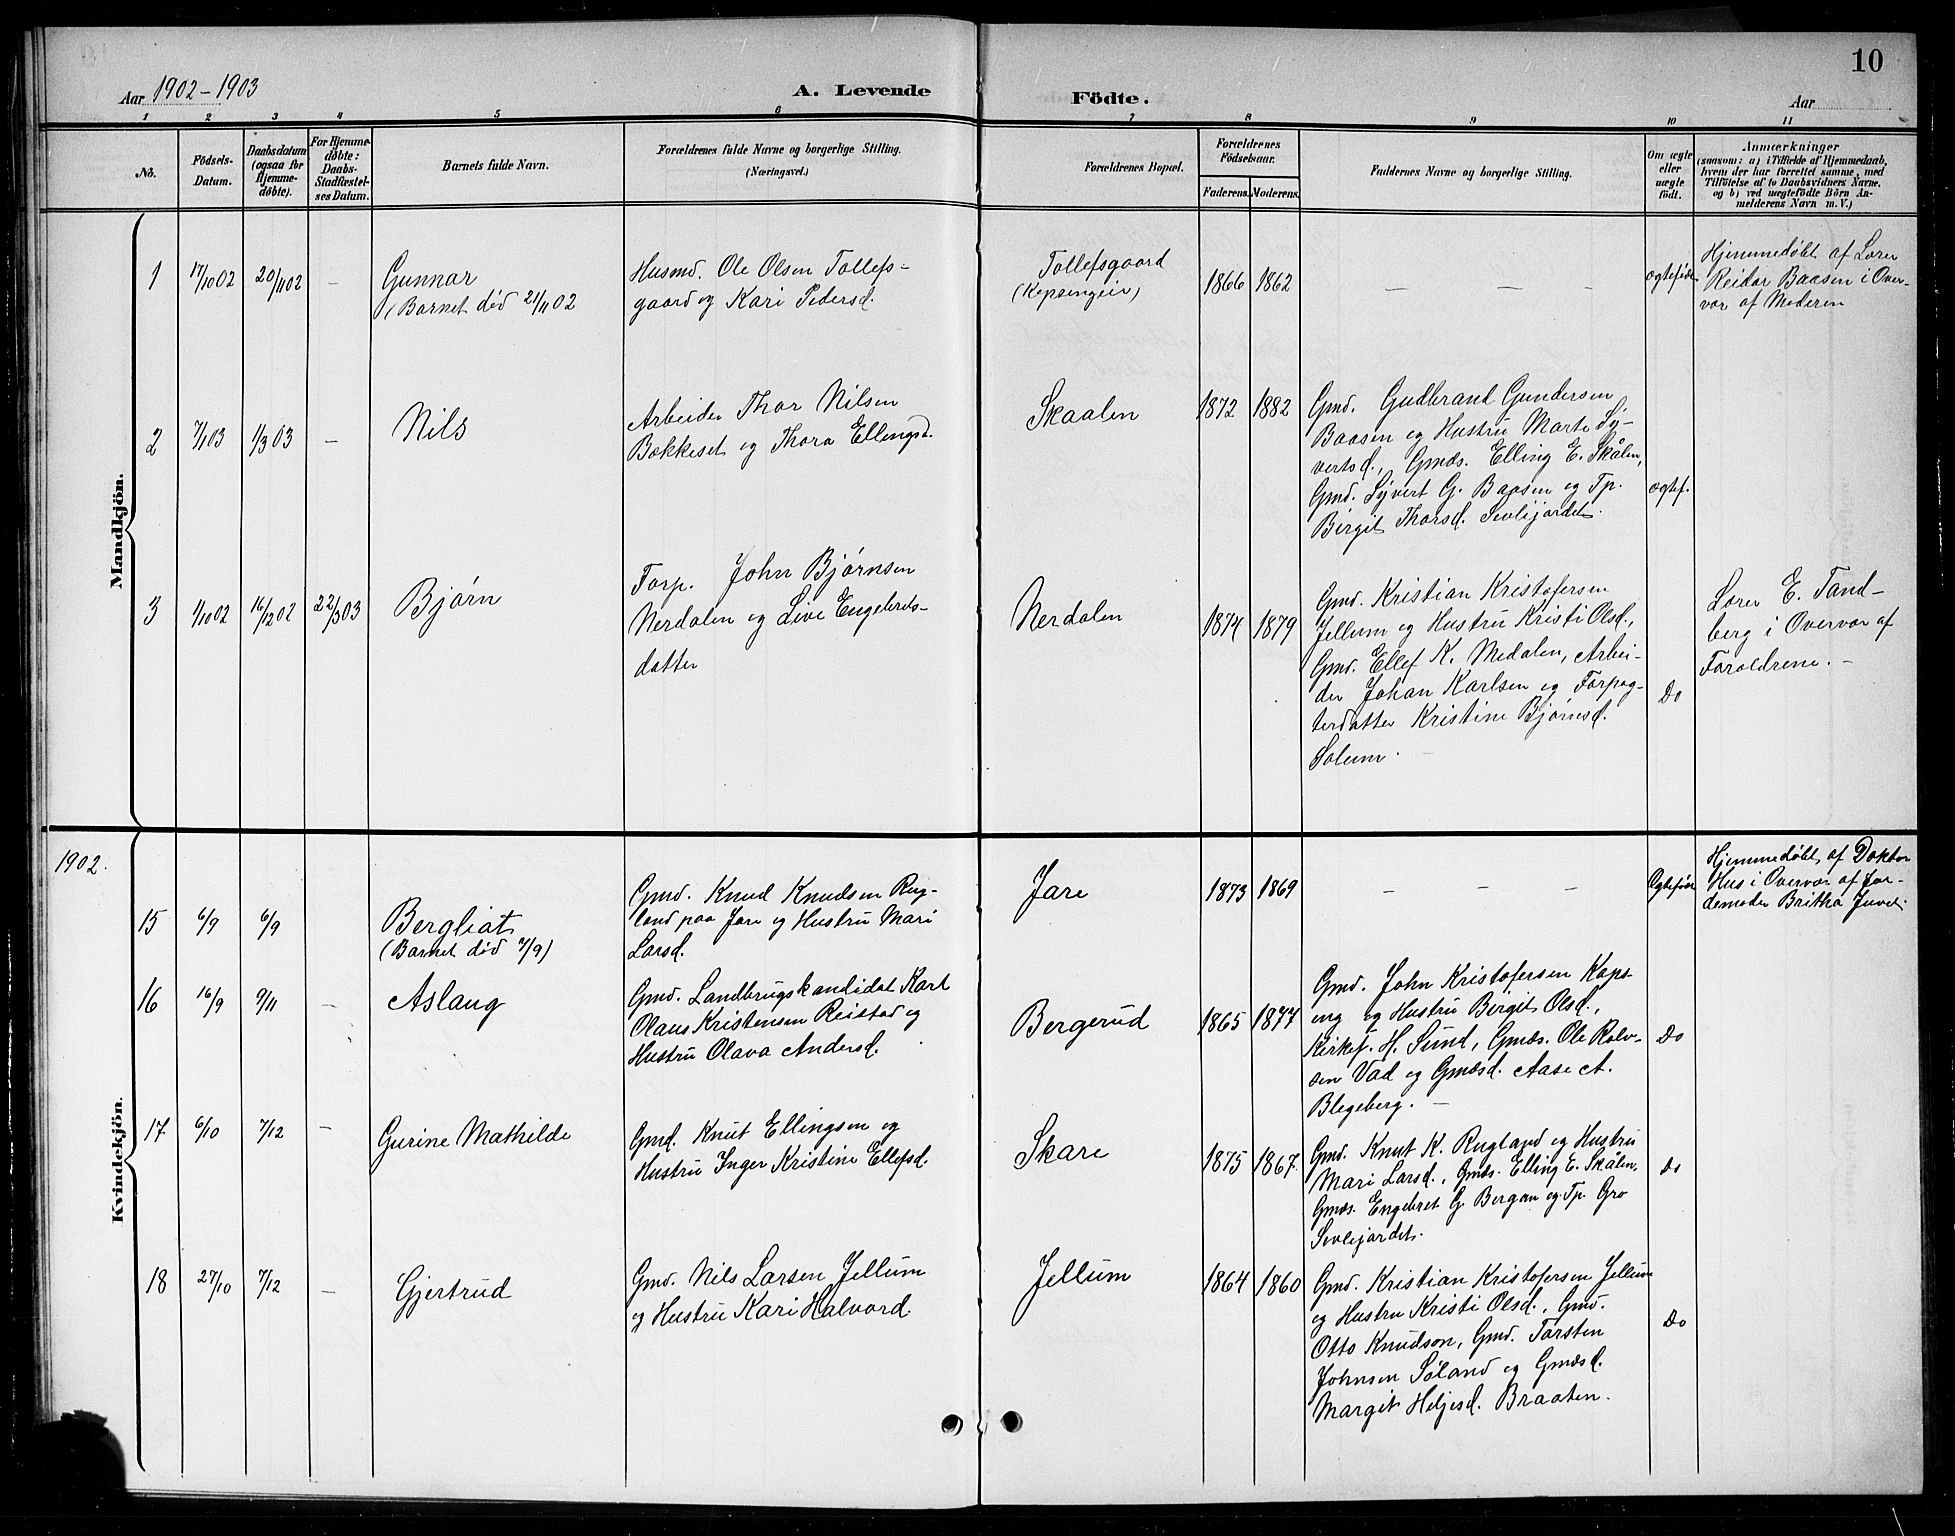 10
Aar 1902-1903
A. Levende Födte.
Aar
1 2 3 4 5 6 7 8 9 10 11
No.
Födsels-Datum.
Daabsdatum (ogsaa for Hjemmedöbte).
For Hjemmedöbte: Daabs-Stadfæstelses Datum.
Barnets fulde Navn.
Forældrenes fulde Navne og borgerlige Stilling.
(Næringsvei.)
Forældrenes Bopæl.
Forældrenes Födselsaar.
Faderens. Moderens.
Faddernes Navne og borgerlige Stilling.
Om ægte eller uægte födt.
Anmærkninger
(saasom: a) i Tilfælde af Hjemmedaab,
hvem der har forrettet samme, med
Tilföielse af to Daabsvidners Navne,
og b) ved uægtefödte Börn An-
melderens Navn m. V.)
Mandkjön.
1 17/10 02 20/11 02 –
Gunnar
(Barnet død 21/11 02
Husmd. Ole Olsen Tollefs-
gaard og Kari Pedersd.
Tollefsgaard
1866 1862
– – –
ægtefødt
Hjemmedøbt af Lærer
Reidar Baasen i Over-
vær af Moderen
2 7/1 03 1/3 03 –
Nils
Arbeider Thor Nilsen
Bækkeset og Thora Ellingsd.
Skaalen
1872 1882
Gmd. Gudbrand Gundersen
Baasen og Hustru Marte Sy-
vertsd., Gmds. Elling E. Skålen,
Gmd. Syvert G. Baasen og Tp.
Birgit Thorsd. Sevlejordet.
ægtef.
3 1/10 02 16/12 02 22/3 03
Bjørn
Forp. John Bjørnsen
Nerdalen og Live Engebrets-
datter
Nerdalen
1874 1879
Gmd. Kristian Kristofersen
Jellum og Hustru Kristi Olsd.,
Gmd. Ellef K. Medalen, Arbei-
der Johan Karlsen og Forpag-
terdatter Kristine Bjørnsd.
Solum.
Do
Lærer E. Tand-
berg i Overvær af
Forældrene. –
Kvindekjön.
1902.
15 6/9 6/9
Bergliot
(Barnet død 7/9)
Gmd. Knud Knudsen Rug-
land paa Jare og Hustru Mari
Larsd.
Jare
1873 1869
– – –
Ægtefødt
Hjemmedøbt af Doktor
Hus i Overvær af Jor-
demoder Britha Juvet.
16 16/9 9/11 –
Aslaug
Gmd. Landbrugskandidat Karl
Olaus Kristensen Reistad og
Hustru Olava Andersd.
Bergerud
1865 1877
Gmd. John Kristofersen Kops-
eng og Hustru Bergit Olsd.,
Kirkef. H. Sund, Gmds. Ole Rolv-
sen Vad og Gmdsd. Aase A.
Blegeberg. –
Do
17 6/10 7/12 –
Gurine Mathilde
Gmd. Knut Ellingsen og
Hustru Inger Kristine Ellefsd.
Skare
1875 1867.
Gmd. Knut K. Rugland og Hustru
Mari Larsd., Gmds. Elling E. Skålen,
Gmds. Engebret G. Bergan og Tp. Gro
Sevlejordet.
do
18 27/10 7/12 –
Gjertrud
Gmd. Nils Larsen Jellum
og Hustru Kari Halvord.
Jellum
1864 1860
Gmd. Kristian Kristofersen Jellum
og Hustru Kristi Olsd., Gmd.
Otto Knudson, Gmd. Torsten
Johnsen Søland og Gmdsd.
Margit Heljesd. Braaten.
Do